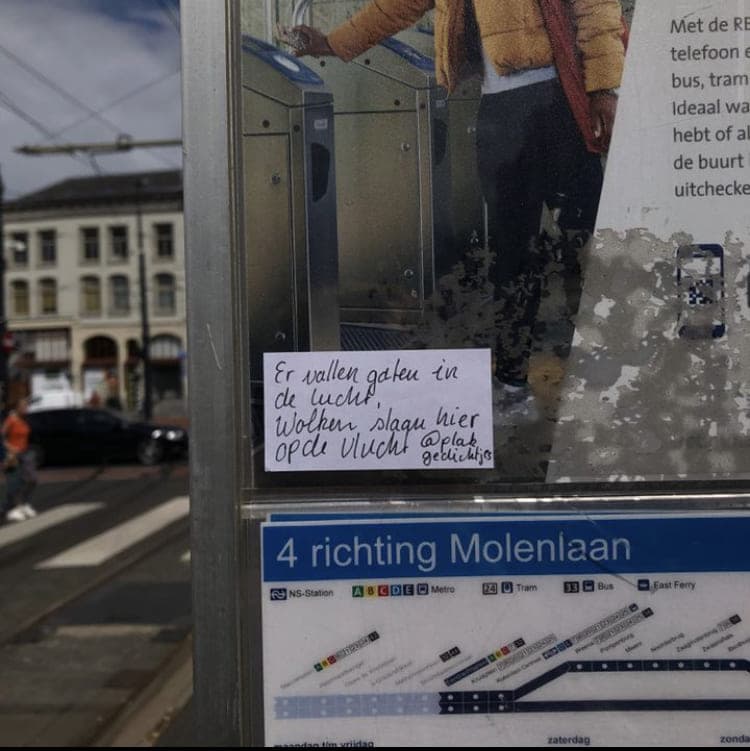 Met de RE
telefoon e
bus, tram
Ideaal wa
hebt of al
de buurt
uitchecke
Er vallen gaten in
de lucht,
Wolken slaan hier
op de vlucht @plak
gedichtjes
4 richting Molenlaan
NS-Station A B C D E Metro 24 Tram 33 Bus East Ferry
maandag t/m vrijdag zaterdag zonda